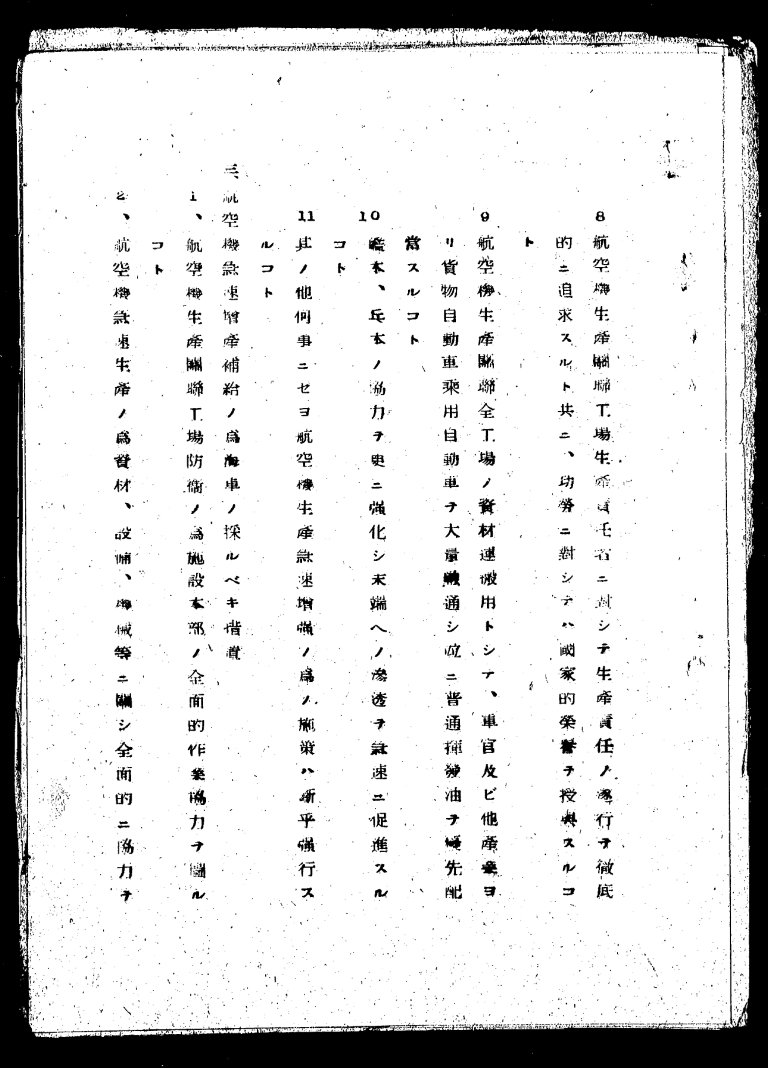 8 航空機生產關聯工場生產責任者ニ對シテ生產責任ノ遂行ヲ徹底
的ニ追求スルト共ニ、功勞ニ對シテハ國家的榮譽ヲ授與スルコ
ト
9 航空機生產關聯全工場ノ資材運搬用トシテ、軍官及ビ他產業ヨ
リ貨物自動車乘用自動車ヲ大量融通シ竝ニ普通揮發油ヲ優先配
當スルコト
10 艦本、兵本ノ協力ヲ更ニ强化シ末端ヘノ滲透ヲ急速ニ促進スル
コト
11 其ノ他何事ニセヨ航空機生產急速增强ノ爲ノ施策ハ斷乎强行ス
ルコト
三、航空機急速增產補給ノ爲海軍ノ採ルベキ措置
1、航空機生產關聯工場防衞ノ爲施設本部ノ全面的作業協力ヲ圖ル
コト
2、航空機急速生產ノ爲資材、設備、機械等ニ關シ全面的ニ協力ヲ